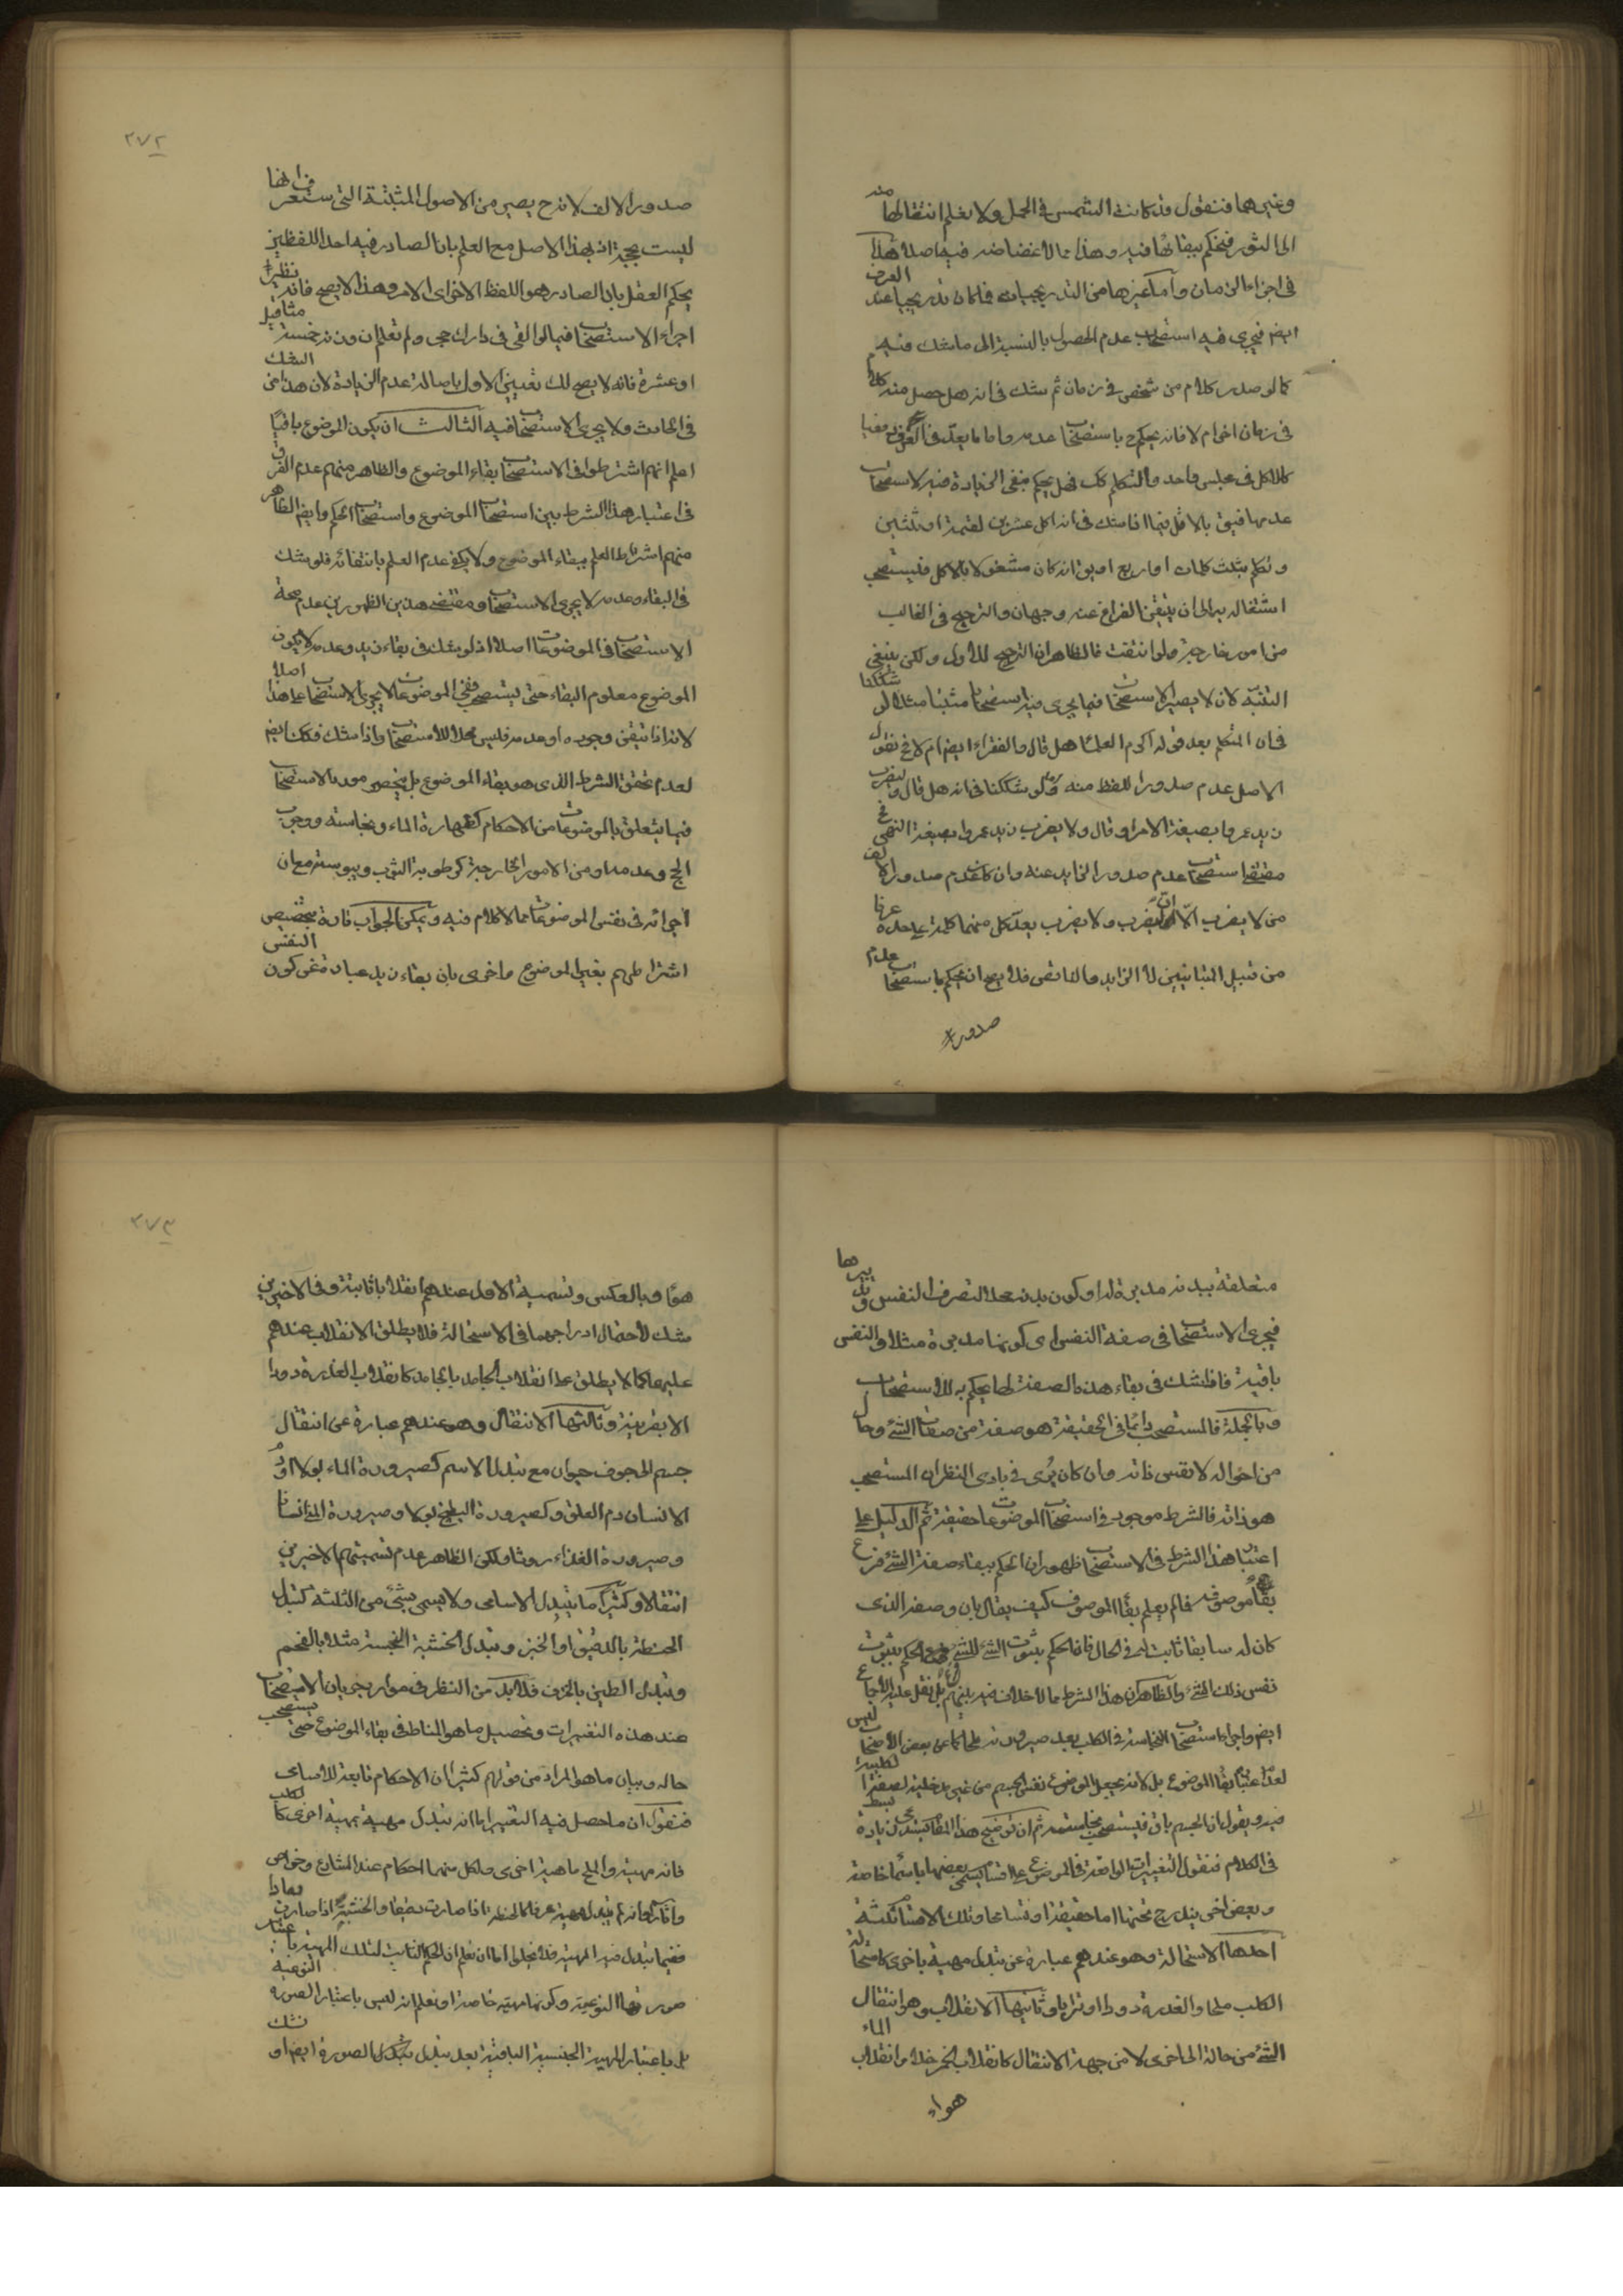 وغيرهما فنقول قد كانت الشمس في الحمل ولا نعلم انتقالها منه
الى الثور فنحكم ببقائها فيه وهذا مما لا غضاضة فيه اصلا هذا
في اجزاء الزمان واما غيرها من التدريجيات فما كان تدريجيا عند العرف
ايضا فيجري فيه استصحاب عدم الحصول بالنسبة الى ما شك فيه
كما لو صدر كلام من شخص في زمان ثم شك في انه هل حصل منه كلام
في زمان اخر ام لا فانه يحكم ح باستصحاب عدمه واما ما يعد في العرف دفعيا
كالاكل في مجلس واحد والتكلم كك فهل يحكم بنفي الزيادة فيه لاستصحاب
عدمها فيؤخذ بالاقل فيما اذا شك في انه اكل عشرين لقمة او ثلثين
وتكلم بثلث كلمات او اربع او يق انه كان مشغولا بالاكل فيستصحب
اشتغاله به الى ان يتيقن الفراغ عنه وجهان والترجيح في الغالب
من امور خارجية ولو انتفت فالظاهر ان الترجيح للاول ولكن ينبغي
التنبه لان لا يصير الاستصحاب فيما يجرى فيه استصحابا مثبتا مثلا لو شككنا
في ان المتكلم بعد قوله اكرم العلماء هل قال والفقراء ايضا ام لا فح نقول
الاصل عدم صدور اللفظ منه ولو شككنا في انه هل قال وليضرب
زيد عمروا بصيغة الامر او قال ولا يضرب زيد عمروا بصيغة النهي فح
مقتضى استصحاب عدم صدور الزايد عنه وان كان عدم صدور الالف
من لا يضرب الا ان ليضرب ولا يضرب يعد كل منهما كلمة على حدة عرفا
من قبيل المتباينين لا الزايد والناقص فلا يصح ان يحكم باستصحاب عدم
صدور
٢٧٢
صدور الالف لانه ح يصير من الاصول المثبتة التي ستعرف انها
ليست بحجة اذ بهذا الاصل مع العلم بان الصادر فيه احد اللفظين
يحكم العقل بان الصادر هو اللفظ الاخر اى الامر وهذا لا يصح فانه نظير
اجراء الاستصحاب فيما لو القى في دارك حجر ولم تعلم ان وزنه خمسة مثاقيل
او عشرة فانه لا يصح لك تعيين الاول باصالة عدم الزيادة لان هذا من الشك
في الحادث ولا يجرى الاستصحاب فيه الثالث ان يكون الموضوع باقيا
اعلم انهم اشترطوا في الاستصحاب بقاء الموضوع والظاهر منهم عدم الفرق
في اعتبار هذا الشرط بين استصحاب الموضوع واستصحاب الحكم وايضا الظاهر
منهم اشتراط العلم ببقاء الموضوع ولا يكفي عدم العلم بانتفائه فلو شك
في البقاء وعدمه لا يجرى الاستصحاب ومقتضى هذين الظهورين عدم صحة
الاستصحاب في الموضوعات اصلا اذ لو شك في بقاء زيد وعدمه لا يكون
الموضوع معلوم البقاء حتى يستصحب ففي الموضوعات لا يجرى الاستصحاب على هذا اصلا
لانه اذا تيقن وجوده او عدمه فليس محلا للاستصحاب واذا شك فكك ايضا
لعدم تحقق الشرط الذي هو بقاء الموضوع بل ينحصر مورد الاستصحاب
فيما يتعلق بالموضوعات من الاحكام كطهارة الماء ونجاسته ووجوب
الحج وعدمه او من الامور الخارجية كرطوبة الثوب ويبوسته مع ان
اجرائه في نفس الموضوعات مما لا كلام فيه ويمكن الجواب تارة بتخصيص
اشتراطهم بغير الموضوع واخرى بان بقاء زيد عبارة عن كون النفس
متعلقة ببدنه مدبرة له او كون بدنه محلا لتصرف النفس وتدبيرها
فيجرى الاستصحاب في صفة النفس اى كونها مدبرة مثلا والنفس
باقية فاذا شك في بقاء هذه الصفة لها يحكم به للاستصحاب
وبالجملة فالمستصحب دائما في الحقيقة هو صفة من صفات الشئ وحال
من احواله لا نفس ذاته وان كان يرى في بادى النظر ان المستصحب
هو ذاته فالشرط موجود في استصحاب الموضوعات حقيقة ثم الدليل على
اعتبار هذا الشرط في الاستصحاب ظهور ان الحكم ببقاء صفة الشئ فرع
بقاء موصوفه فما لم يعلم بقاء الموصوف كيف يقال بان وصفه الذى
كان له سابقا ثابت له في الحال فان الحكم بثبوت الشئ للشئ فرع الحكم بثبوت
نفس ذلك الشئ والظاهر ان هذا الشرط مما لا خلاف فيه بينهم بل نقل عليه الاجماع
ايضا واجراء استصحاب النجاسة في الكلب بعد صيرورته ملحا كما عن بعض الاصحاب ليس
لعدم اعتبار بقاء الموضوع بل لانه يجعل الموضوع نفس الجسم من غير مدخلية لصفة الكلبية
فيه ويقول ان الجسم باق فيستصحب نجاسته ثم ان توضيح هذا المقام يستدعى زيادة بسط
في الكلام فنقول التغييرات الواقعة في الموضوع على اقسام يسمى بعضها باسماء خاصة
وبعض اخر يندرج تحتها اما حقيقة او تسامحا وتلك الاقسام ثلثة
احدها الاستحالة وهو عندهم عبارة عن تبدل مهية باخرى كاستحالة
الكلب ملحا والعذرة دودا او ترابا وثانيها الانقلاب وهو انتقال
الشئ من حالة الى اخرى لا من جهة الانتقال كانقلاب الخمر خلا وانقلاب الماء
هواء
٢٧٣
هواء وبالعكس وتسمية الاول عندهم انقلابا ثابتة وفي الاخيرين
شك لاحتمال ادراجهما في الاستحالة فلا يطلق الانقلاب عندهم
عليهما كما لا يطلق على انقلاب الجامد بالجامد كانقلاب العذرة دودا
الا بقرينة وثالثها الانتقال وهو عندهم عبارة عن انتقال
جسم الى جوف حيوان مع تبدل الاسم كصيرورة الماء بولا او دم
الانسان دم العلق وكصيرورة البطيخ بولا وصيرورة المني انسانا
وصيرورة الغذاء روثا ولكن الظاهر عدم تسميتهم الاخيرين
انتقالا وكثيرا ما يتبدل الاسامى ولا يسمى بشئ من الثلثة كتبدل
الحنطة بالدقيق او الخبز وتبدل الخشبة النجسة مثلا بالفحم
وتبدل الطين بالخزف فلا بد من النظر في موارد جريان الاستصحاب
عند هذه التغييرات وتحصيل ما هو المناط في بقاء الموضوع حتى يستصحب
حاله وبيان ما هو المراد من قولهم كثيرا ان الاحكام تابعة للاسامى
فنقول ان ما حصل فيه التغيير اما انه تبدل مهية بمهية اخرى كالكلب
فانه مهية والملح ماهية اخرى ولكل منهما احكام عند الشارع وخواص
واثار او انه لم يتبدل مهية عرفا كالحنطة اذا صارت دقيقا والخشبة اذا صارت رمادا
ففيما تبدل فيه المهية فلا يخلوا اما ان نعلم ان الحكم الثابت لتلك المهية باعتبار
صورتها النوعية وكونها مهية خاصة او نعلم انه ليس باعتبار الصورة النوعية
بل باعتبار المهية الجنسية الباقية بعد تبدل الصورة ايضا او نشك